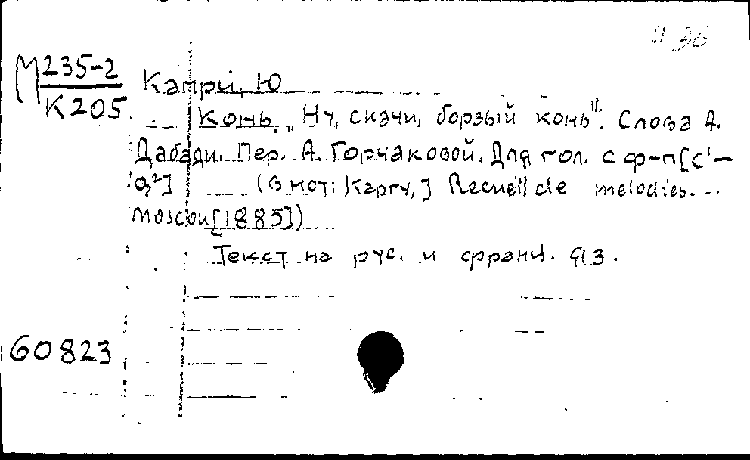 И 36
М 235-2
К 205.
Капри, Ю
Конь. „Ну, скачи, борзый конь". Слова А.
Дабади. Пер. А. Горчаковой. Для гол. с ф-п [c¹-
g²] (В нот: Капри,] Recueil de melodies...
Moscou [1885])
Текст на рус. и франц. яз.
60823